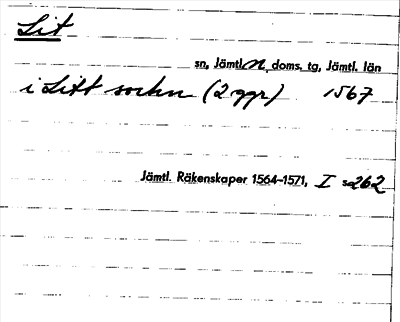 Lit
sn, Jämtl. N. doms. tg, Jämtl. län
i Litt sockn (2 ggr) 1567
Jämtl. Räkenskaper 1564-1571, I s 262